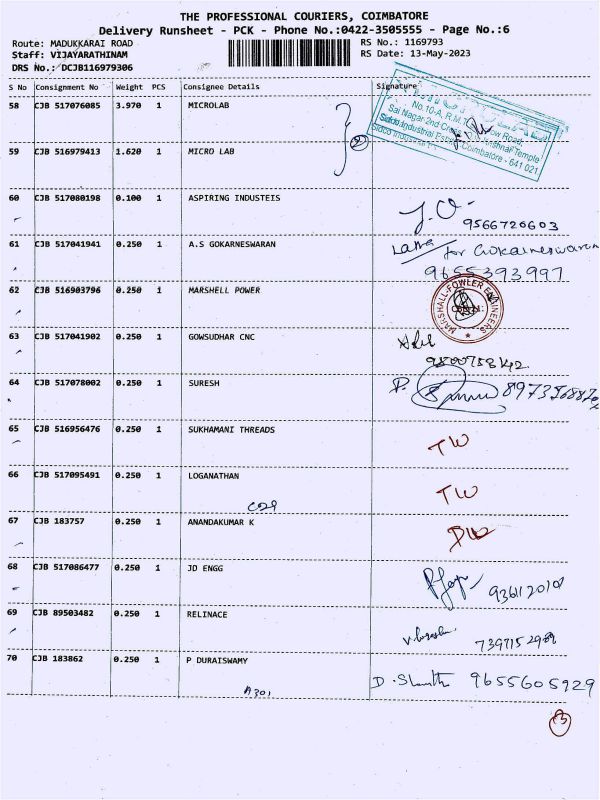 THE PROFESSIONAL COURIERS, COIMBATORE
Delivery Runsheet - PCK - Phone No.:0422-3505555 - Page No.:6
Route: MADUKKARAI ROAD RS No.: 1169793
Staff: VIJAYARATHINAM RS Date: 13-May-2023
DRS No.: DCJB116979306
S No Consignment No Weight PCS Consignee Details Signature
58 CJB 517076085 3.970 1 MICROLAB
No.10-A, R.M.
Sai Nagar 2nd Cross
Sidco Industrial Estate, Coimbatore - 641 021
2
59 CJB 516979413 1.620 1 MICRO LAB
60 CJB 517080198 0.100 1 ASPIRING INDUSTEIS
9566720603
61 CJB 517041941 0.250 1 A.S GOKARNESWARAN
for Gokarneswaran
9655393997
62 CJB 516903796 0.250 1 MARSHELL POWER
MARSHALL-FOWLER ENGINEERS
63 CJB 517041902 0.250 1 GOWSUDHAR CNC
64 CJB 517078002 0.250 1 SURESH
65 CJB 516956476 0.250 1 SUKHAMANI THREADS
TW
66 CJB 517095491 0.250 1 LOGANATHAN
TW
67 CJB 183757 0.250 1 ANANDAKUMAR K
68 CJB 517086477 0.250 1 JD ENGG
69 CJB 89503482 0.250 1 RELINACE
70 CJB 183862 0.250 1 P DURAISWAMY
A301
9655605929
13